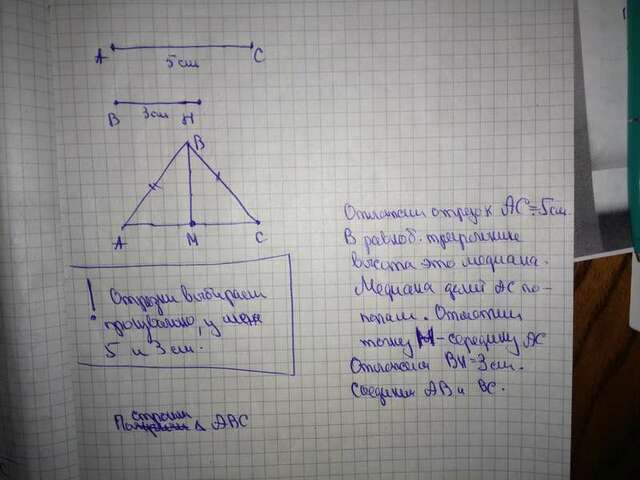 A C
5 см
B 3 см H
B
A M C
! Отрезки выбираем
произвольно, у меня
5 и 3 см.
Построим Δ ABC
Отложим отрезок AC = 5 см.
В равноб. треугольнике
высота это медиана.
Медиана делит AC по-
полам. Отметим
точку H - середину AC
Отложим BH = 3 см.
Соединим AB и BC.